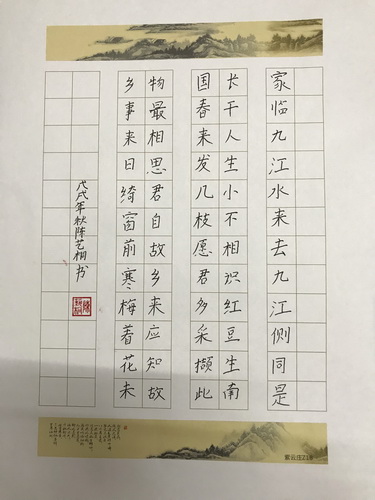 家临九江水来去九江侧同是
长干人生小不相识红豆生南
国春来发几枝愿君多采撷此
物最相思君自故乡来应知故
乡事来日绮窗前寒梅着花未
戊戌年秋陈艺桐书